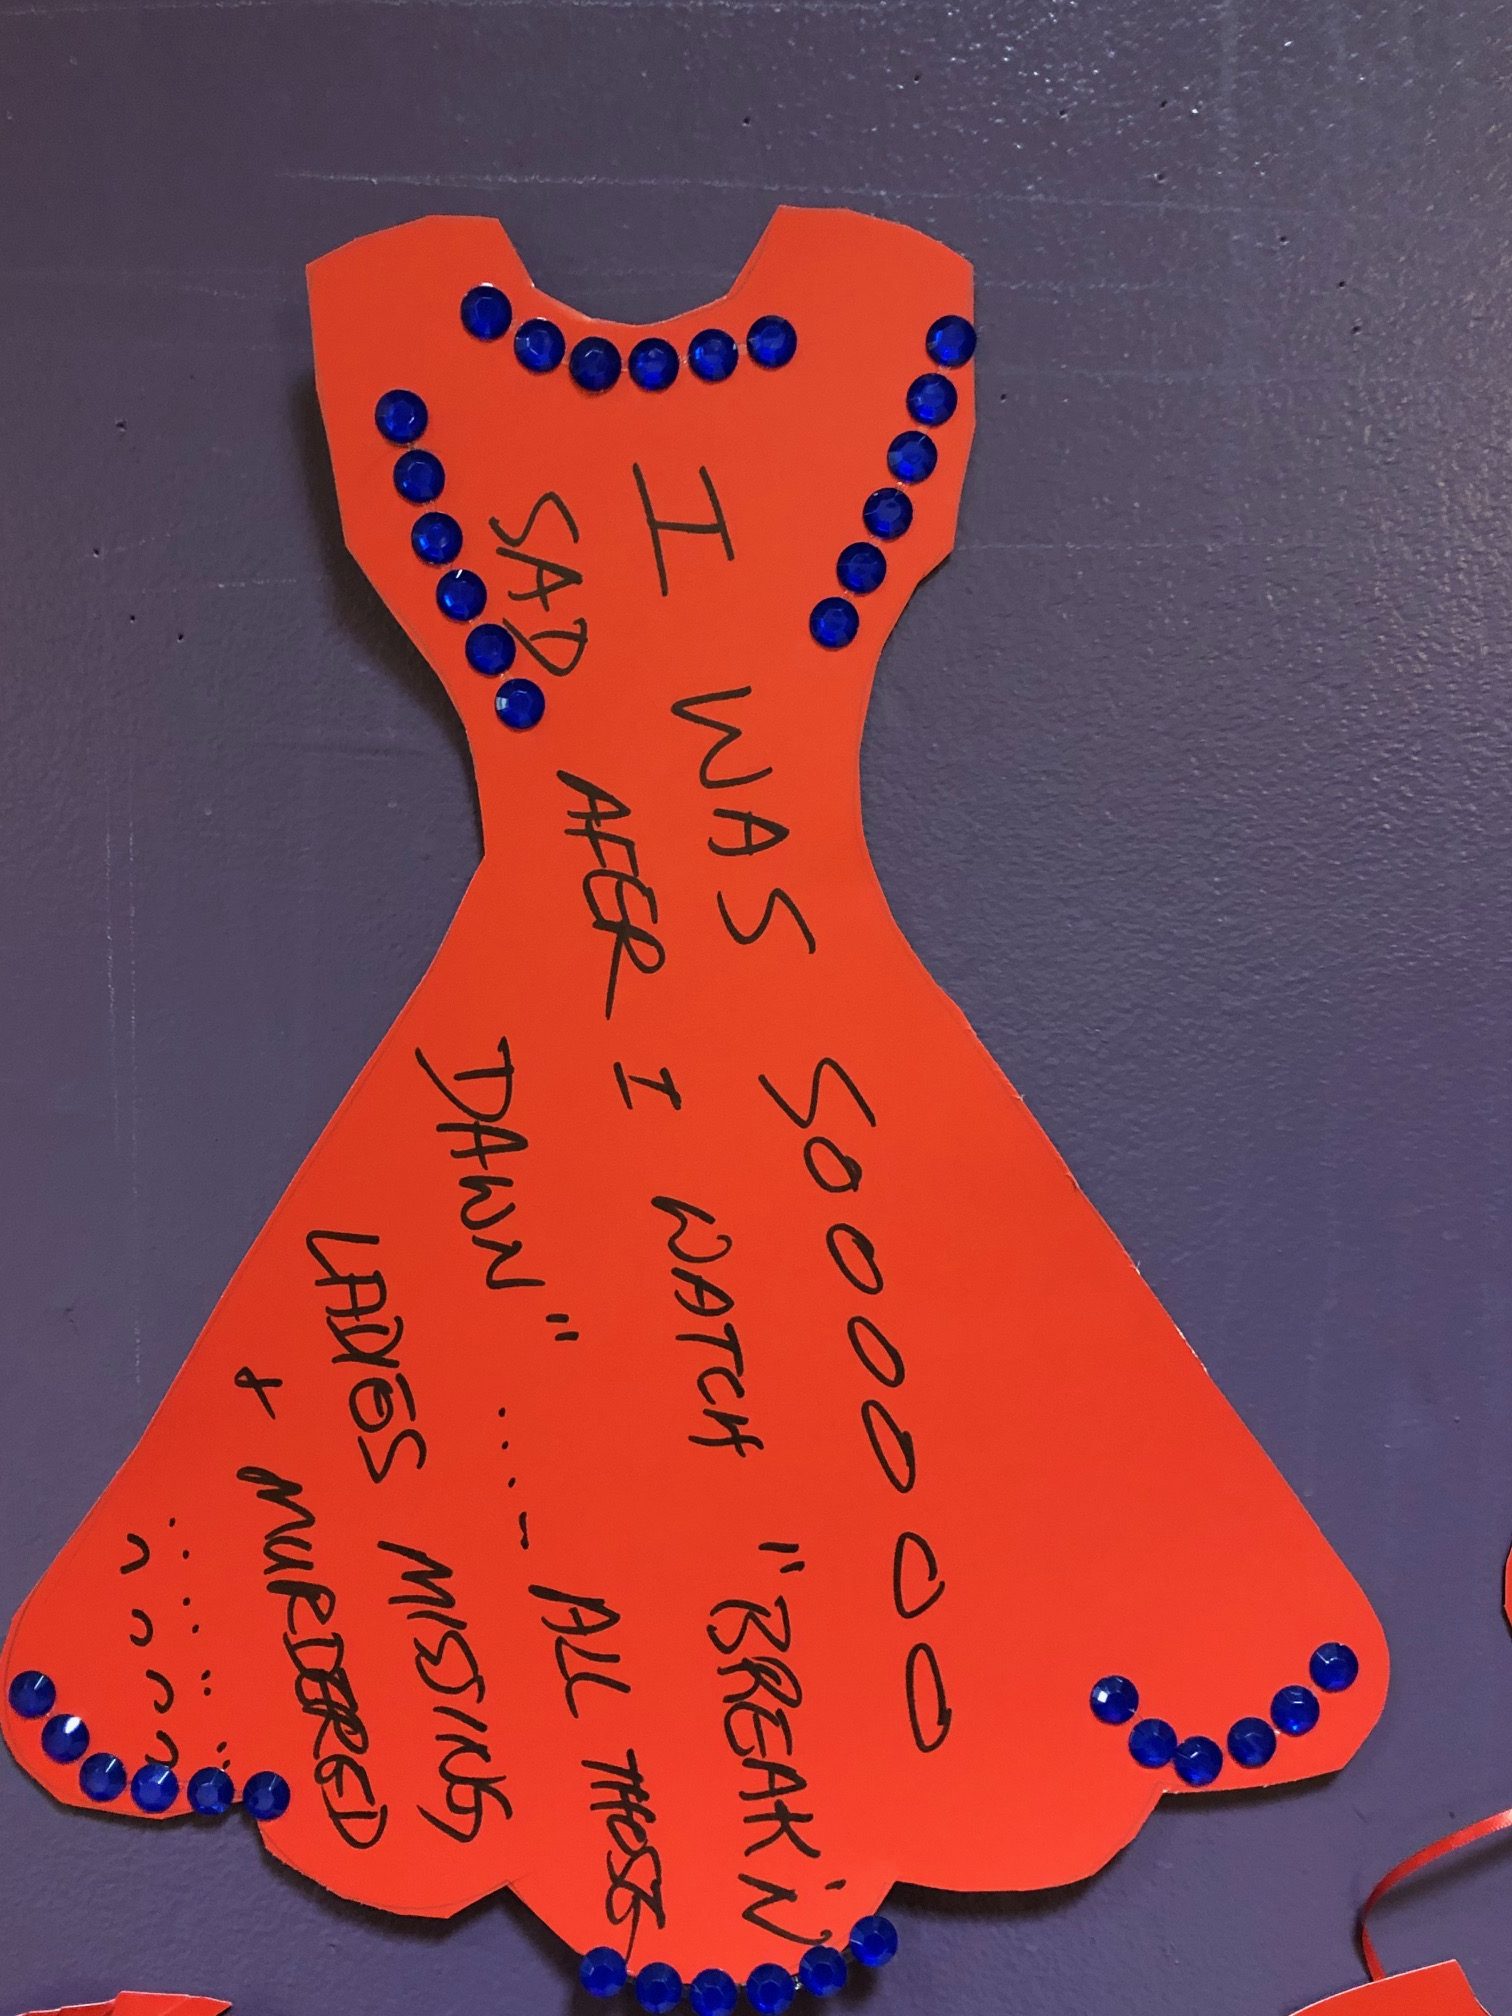 I WAS SOOOOOO
SAD AFER I WATCH "BREAK'N
DAWN" ....- ALL THOSE
LADIES MISSING
+ MURDERED